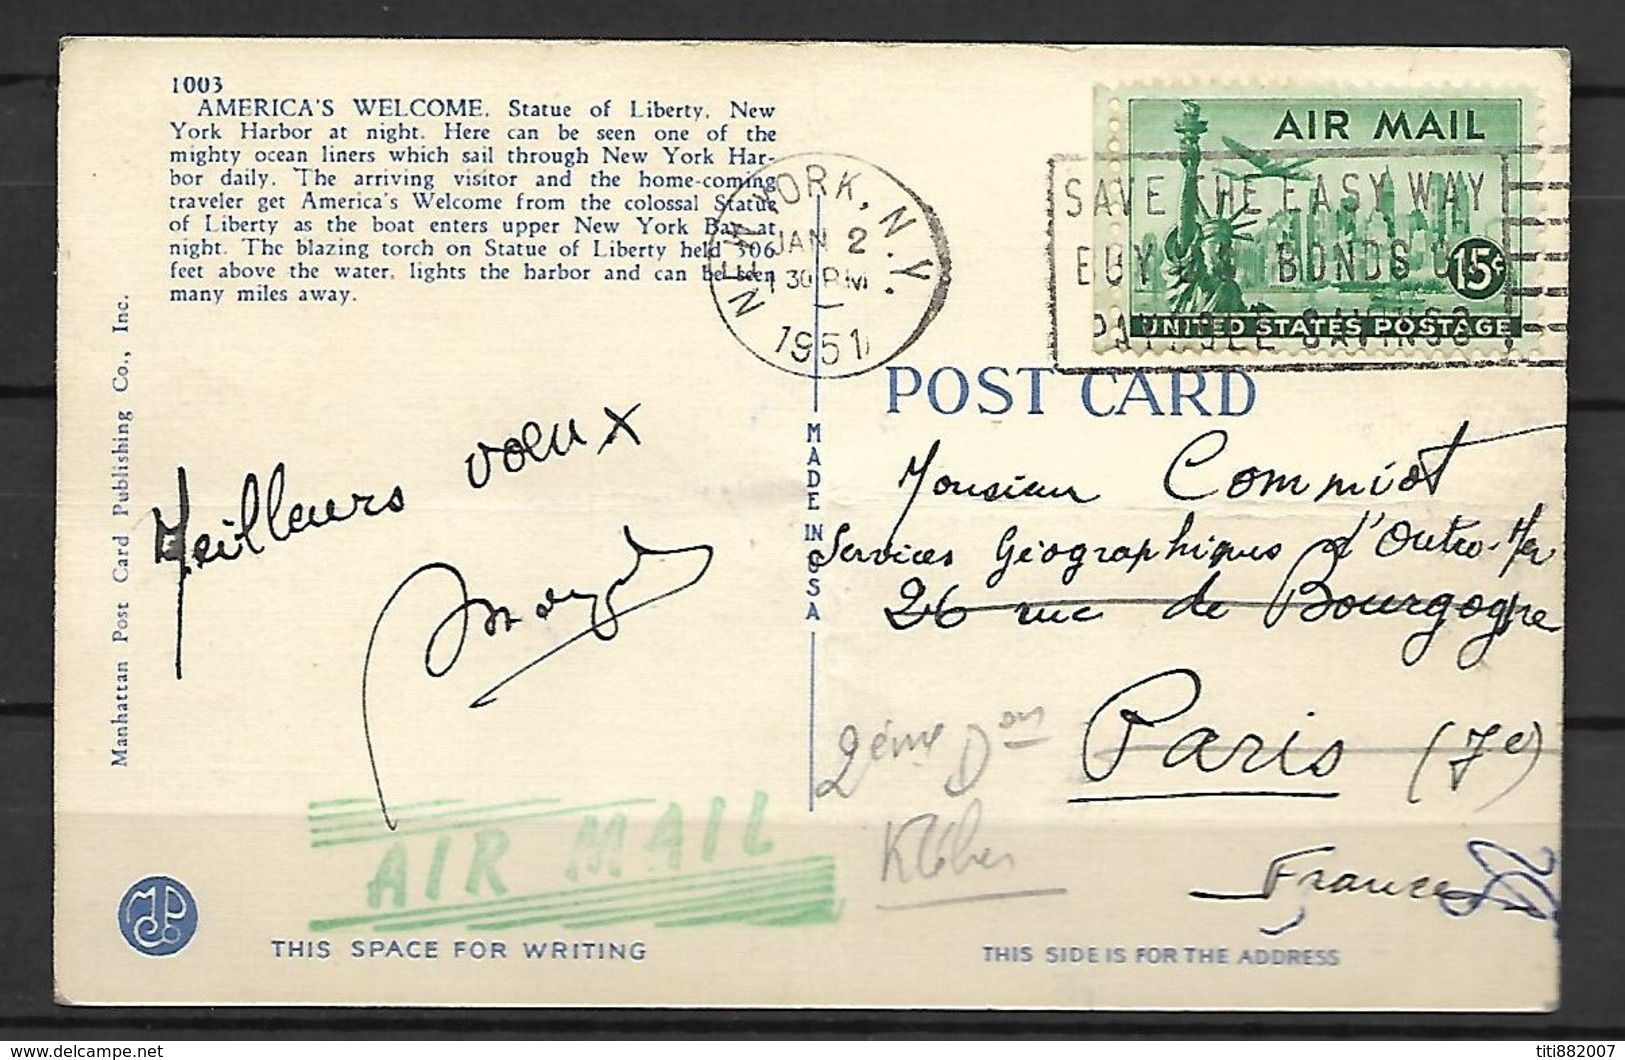 1003
AMERICA'S WELCOME. Statue of Liberty, New
York Harbor at night. Here can be seen one of the
mighty ocean liners which sail through New York Har-
bor daily. The arriving visitor and the home-coming
traveler get America's Welcome from the colossal Statue
of Liberty as the boat enters upper New York Bay at
night. The blazing torch on Statue of Liberty held 306
feet above the water, lights the harbor and can be seen
many miles away.
Manhattan Post Card Publishing Co., Inc.
NEW YORK, N.Y.
JAN 2
1 30 PM
1951
AIR MAIL
15¢
UNITED STATES POSTAGE
SAVE THE EASY WAY
BUY U.S. BONDS ON
PAYROLL SAVINGS
POST CARD
MADE IN USA
Meilleurs voeux
Monsieur Commiot
Services Géographiques d'Outre-Mer
26 rue de Bourgogne
Paris (7e)
France
2ème Don
Kléber
AIR MAIL
THIS SPACE FOR WRITING
THIS SIDE IS FOR THE ADDRESS
titi882007